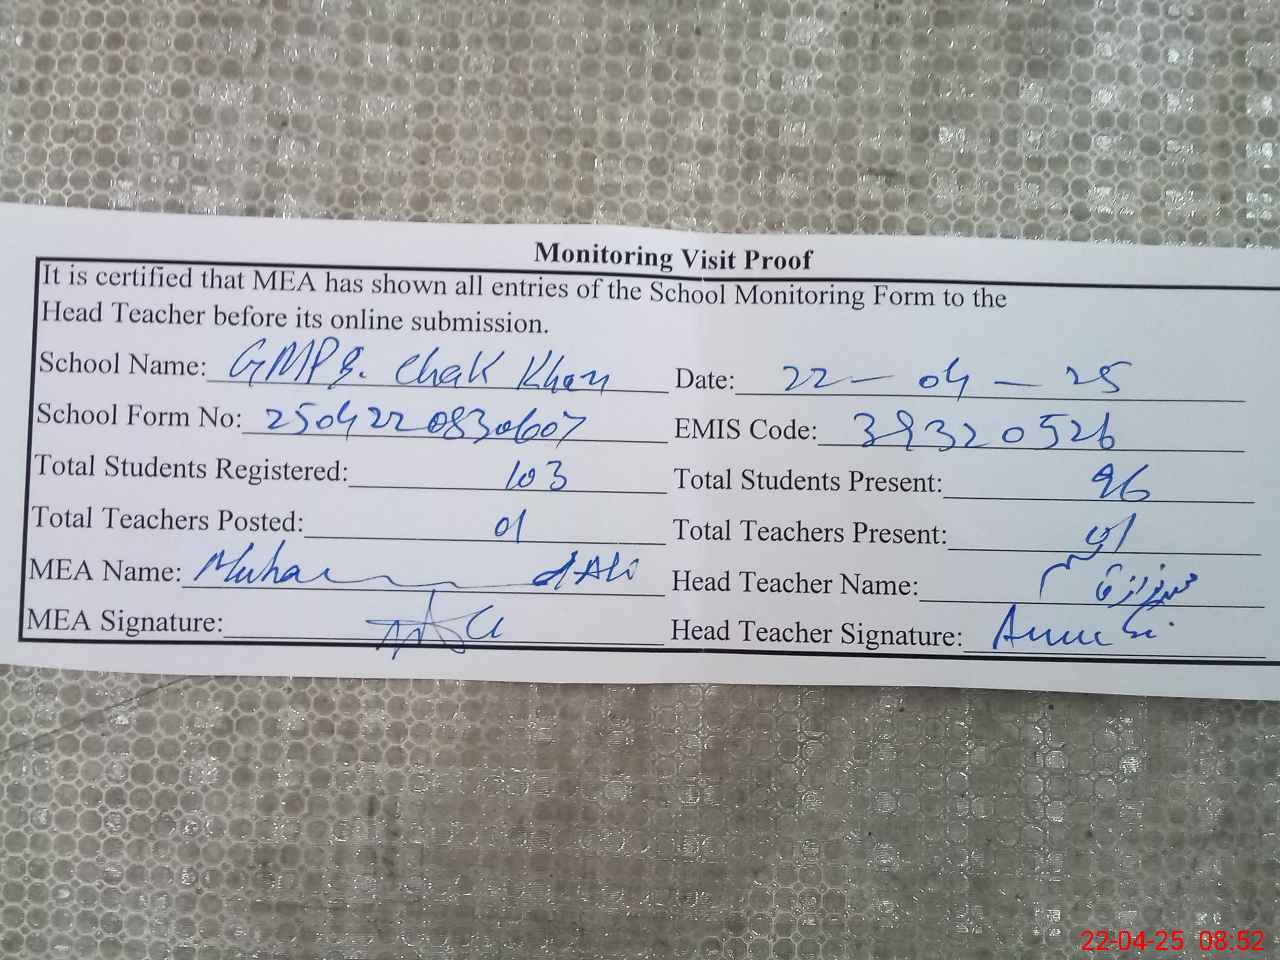 Monitoring Visit Proof
It is certified that MEA has shown all entries of the School Monitoring Form to the
Head Teacher before its online submission.
School Name: GMPS. Chak Khan Date: 22-04-25
School Form No: 2504220830607 EMIS Code: 39320526
Total Students Registered: 103 Total Students Present: 96
Total Teachers Posted: 01 Total Teachers Present: 01
MEA Name: Muhammad Ali Head Teacher Name:
MEA Signature: Head Teacher Signature:
22-04-25 08:52